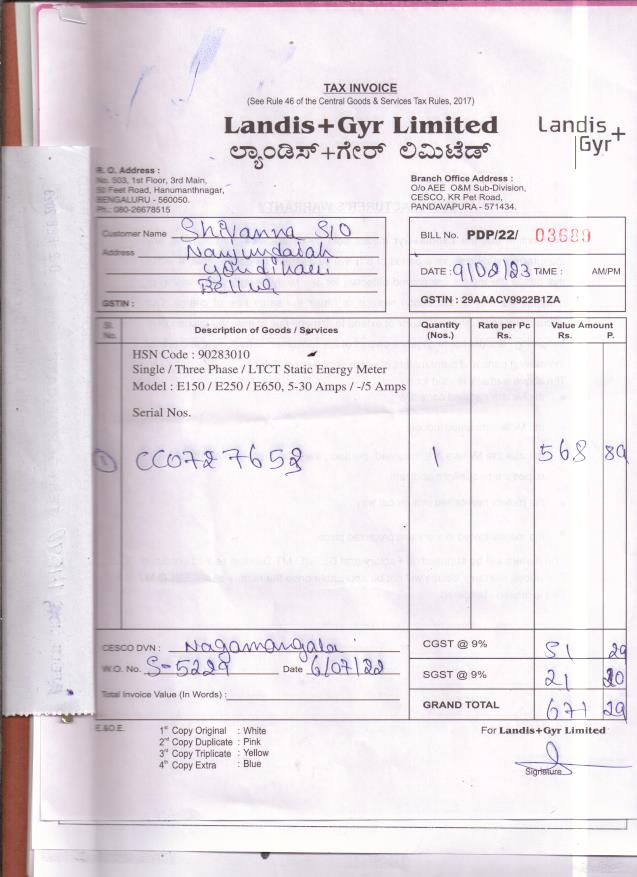 TAX INVOICE
(See Rule 46 of the Central Goods & Services Tax Rules, 2017)
Landis+Gyr Limited
ಲ್ಯಾಂಡಿಸ್+ಗೇರ್ ಲಿಮಿಟೆಡ್
Landis+
Gyr
R. O. Address :
No. 503, 1st Floor, 3rd Main,
50 Feet Road, Hanumanthnagar,
BENGALURU - 560050.
Ph.: 080-26678515
Branch Office Address :
O/o AEE O&M Sub-Division,
CESCO, KR Pet Road,
PANDAVAPURA - 571434.
Customer Name Shivanna S/O
Address Nanjundaiah
Bellur
GSTIN :
BILL No. PDP/22/ 03689
DATE : 9/02/23 TIME : AM/PM
GSTIN : 29AAACV9922B1ZA
Sl. No. Description of Goods / Services Quantity (Nos.) Rate per Pc Rs. Value Amount Rs. P.
HSN Code : 90283010
Single / Three Phase / LTCT Static Energy Meter
Model : E150 / E250 / E650, 5-30 Amps / -/5 Amps
Serial Nos.
CC0727652 1 568 89
CESCO DVN : Nagamangala
W.O. No. S-5229 Date 6/07/22
Total Invoice Value (In Words) :
CGST @ 9% 51 29
SGST @ 9% 21 20
GRAND TOTAL 671 29
E.&O.E.
1st Copy Original : White
2nd Copy Duplicate : Pink
3rd Copy Triplicate : Yellow
4th Copy Extra : Blue
For Landis+Gyr Limited
Signature